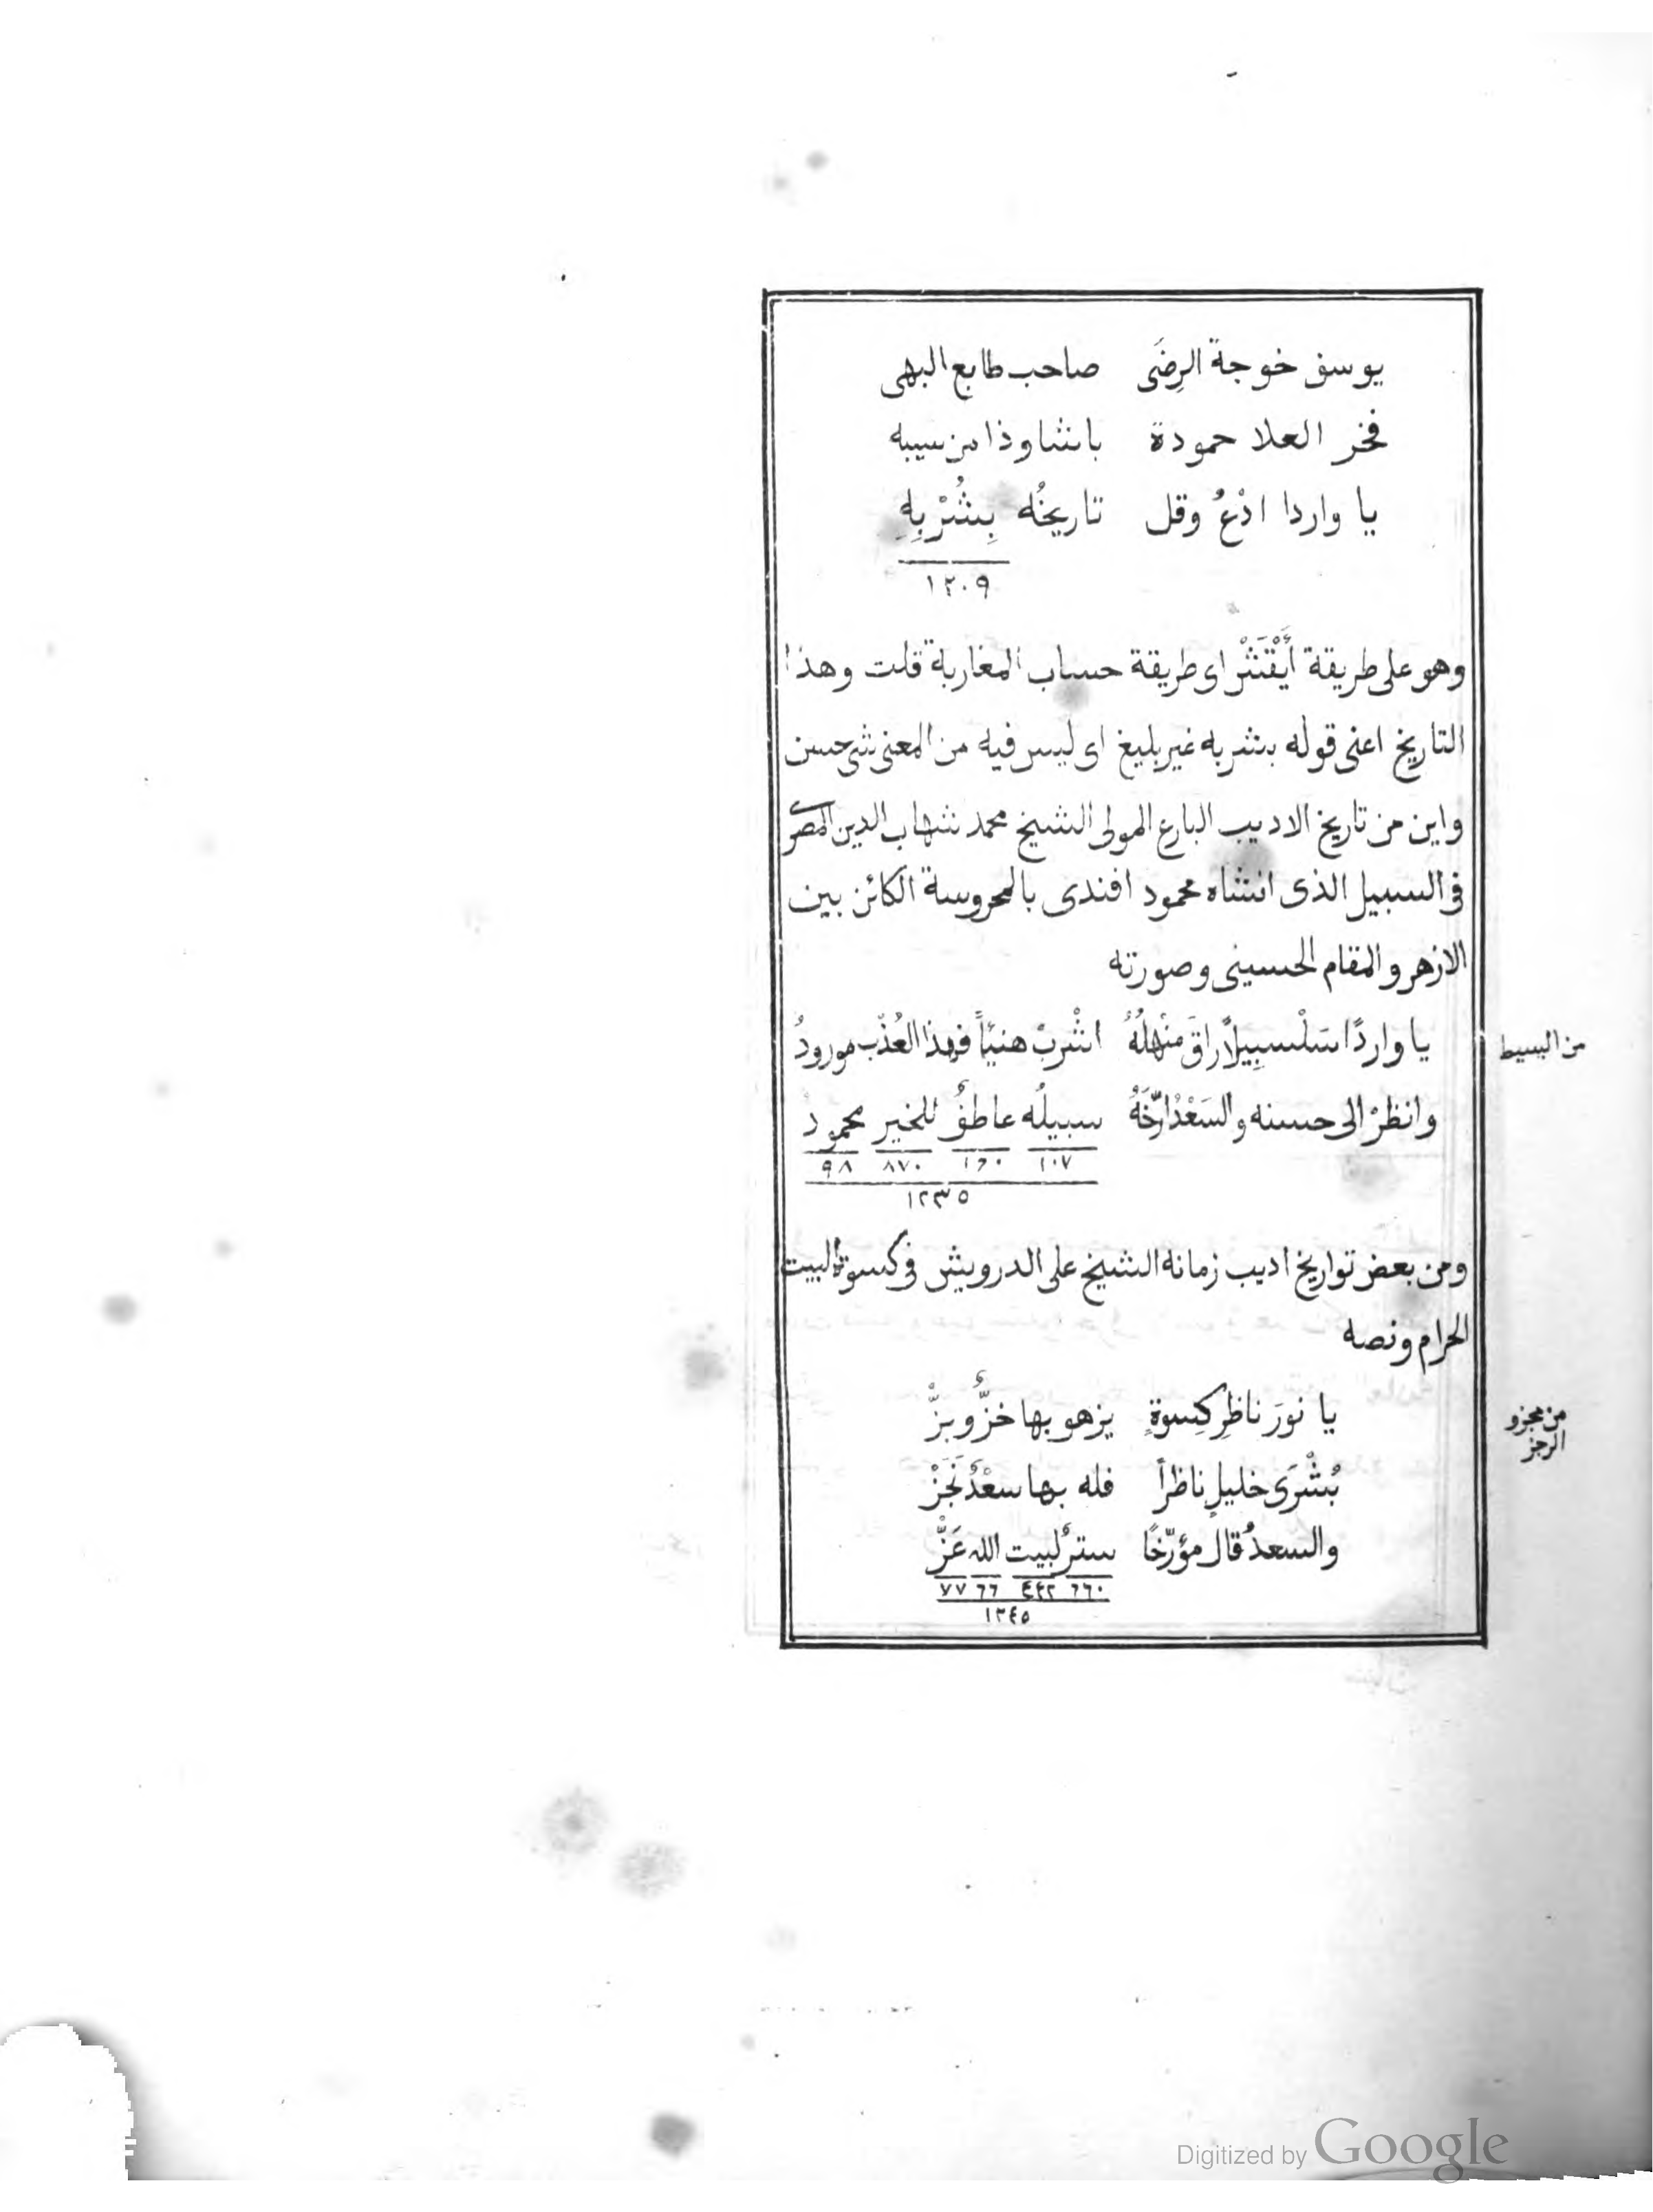 يوسف خوجة الرِضَى صاحب طابع البهى
فخر العلا حمودة باشا وذا من سيبه
يا واردا ادْعُ وقل تاريخُه بِشُرْبِهِ
١٢٠٩
وهو على طريقة أَيْقَشْ اى طريقة حساب المغاربة قلت وهذا
التاريخ اعنى قوله بشربه غير بليغ اى ليس فيه من المعنى شى حسن
واين من تاريخ الاديب البارع المولى الشيخ محمد شهاب الدين المصرى
فى السبيل الذى انشاه محمود افندى بالمحروسة الكائن بين
الازهر والمقام الحسينى وصورته
من البسيط
يا واردًا سَلْسبِيلاً راقَ مَنْهلُهُ اشْربْ هنيئاً فهذا العُذْب مورودُ
وانظرْ الى حسنه والسَعْدُ ارّخَهُ سبيلُه عاطفُ للخير محمودُ
١٠٧ ١٦٠ ٨٧٠ ٩٨
١٢٣٥
ومن بعض تواريخ اديب زمانه الشيخ على الدرويش فى كسوة البيت
الحرام ونصه
من مجزو
الرجز
يا نورَ ناظرِ كِسوةٍ يزهو بها خزٌّ وبزّْ
بُشْرَى خليلٍ ناظراً فله بها سعْدٌ نَجَزْ
والسعدُ قال مؤرّخًا سترٌ لبيت الله عَزّْ
٦٦٠ ٤٤٢ ٦٦ ٧٧
١٢٤٥
Digitized by Google